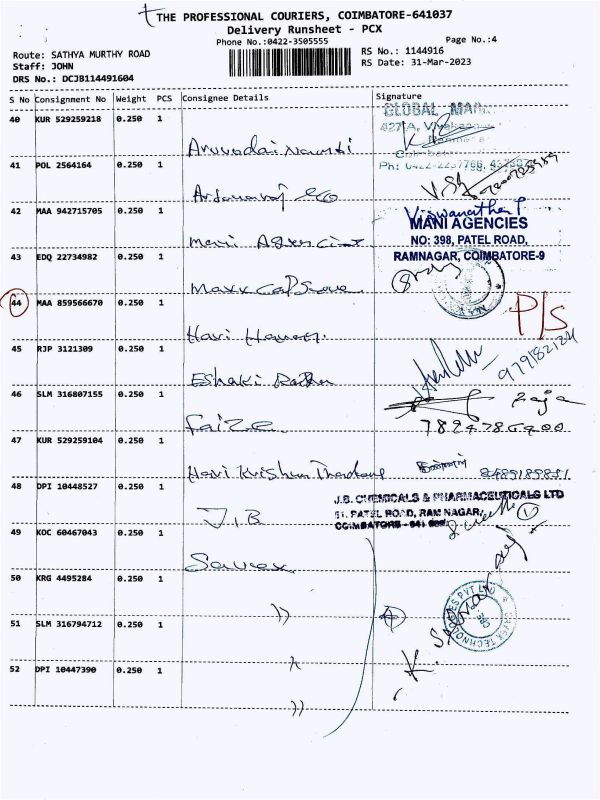 THE PROFESSIONAL COURIERS, COIMBATORE-641037
Delivery Runsheet - PCX
Phone No.:0422-3505555 Page No.:4
Route: SATHYA MURTHY ROAD RS No.: 1144916
Staff: JOHN RS Date: 31-Mar-2023
DRS No.: DCJB114491604
S No Consignment No Weight PCS Consignee Details Signature
40 KUR 529259218 0.250 1
GLOBAL
41 POL 2564164 0.250 1
42 MAA 942715705 0.250 1
Viswanathan P
MANI AGENCIES
NO: 398, PATEL ROAD,
RAMNAGAR, COIMBATORE-9
Mani Agencies
43 EDQ 22734982 0.250 1
44 MAA 859566670 0.250 1
P/S
Hari
45 RJP 3121309 0.250 1
979182124
Eshaki
46 SLM 316807155 0.250 1
Raja
Faize
47 KUR 529259104 0.250 1
Hari Krishna
8489189851
48 DPI 10448527 0.250 1
J.B. CHEMICALS & PHARMACEUTICALS LTD
51, PATEL ROAD, RAM NAGAR,
COIMBATORE - 641 009
J.B
49 KOC 60467043 0.250 1
Savex
50 KRG 4495284 0.250 1
))
51 SLM 316794712 0.250 1
SAVEX TECHNOLOGIES PVT LTD
CBE
52 DPI 10447390 0.250 1
))